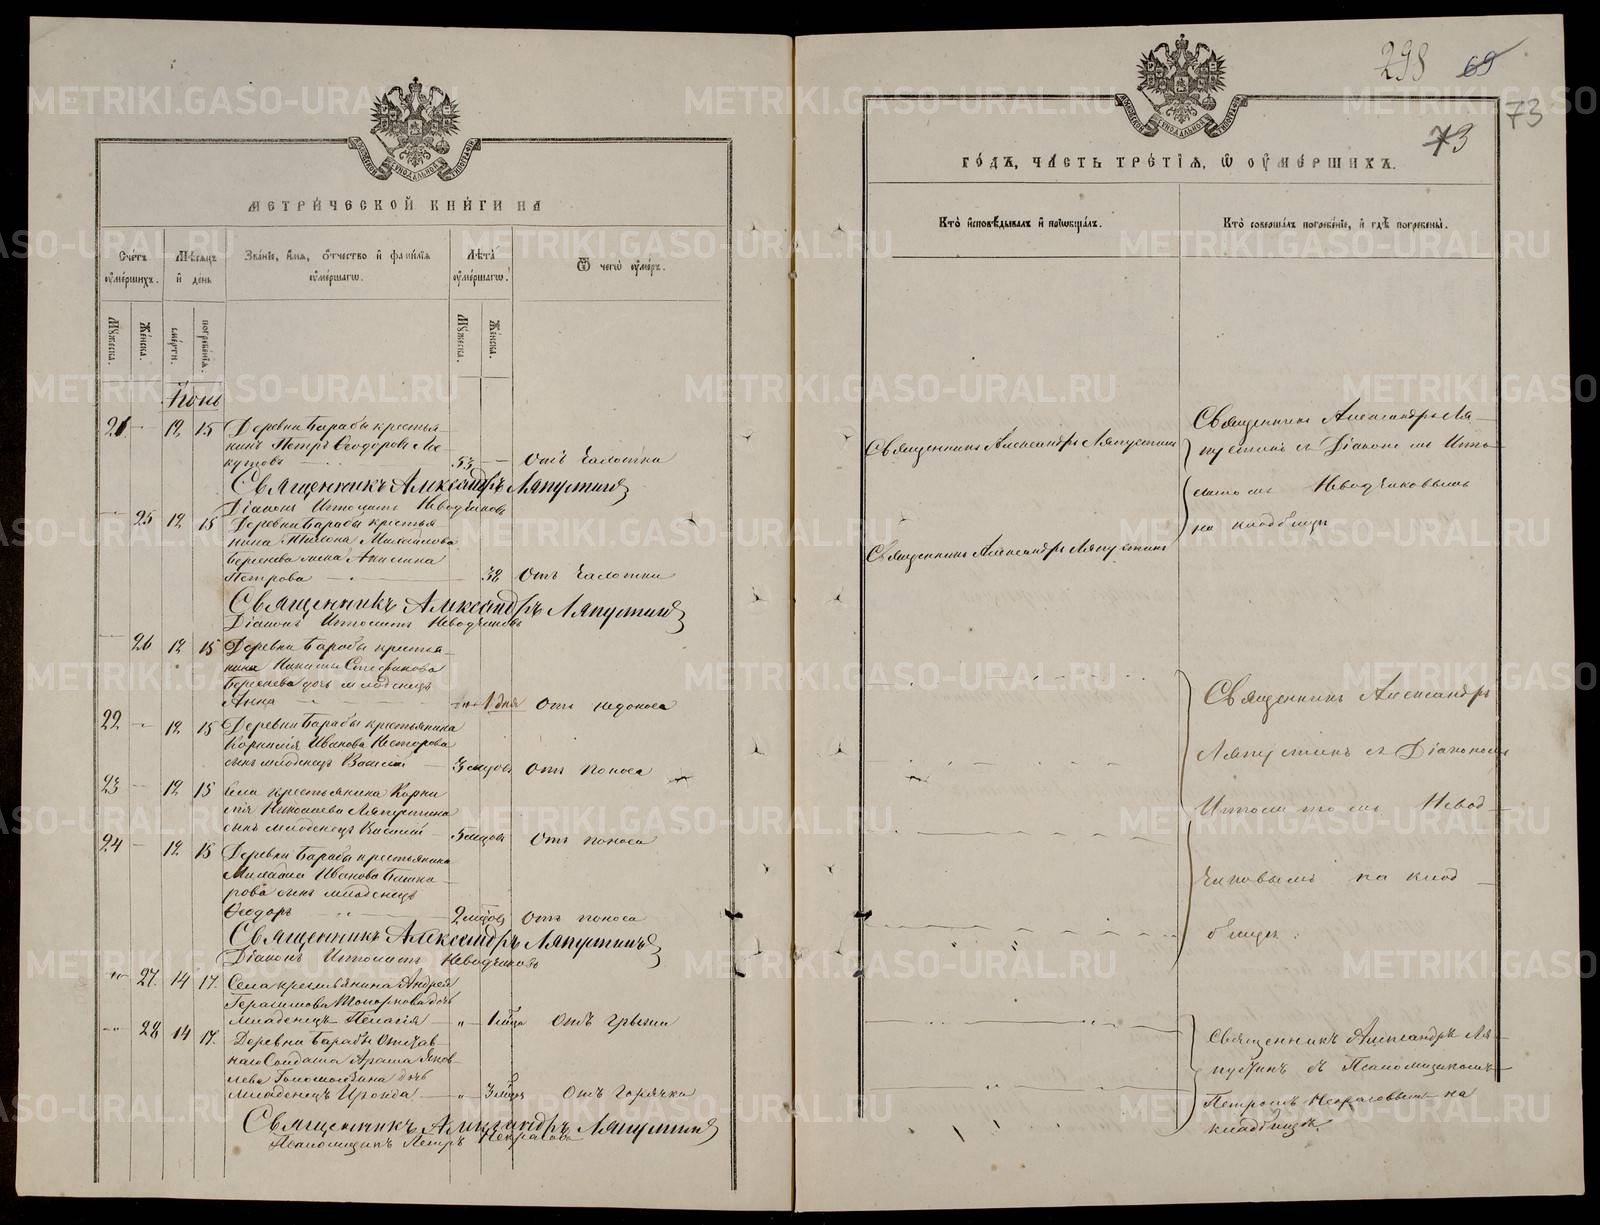 МЕТРИ́ЧЕСКОЙ КНИ́ГИ НА
Сче́тъ оу҆ме́ршихъ.
Мꙋжеска.
Же́нска.
Мѣ́сѧцъ и҆ де́нь
сме́рти.
погребе́нїѧ.
Зва́нїе, и҆́мѧ, ѻ҆́тчество и҆ фами́лїѧ оу҆ме́ршагѡ.
Лѣ́та оу҆ме́ршагѡ.
Мꙋжеска.
Же́нска.
Ѿ чегѡ̀ оу҆́меръ.
Іюнь
21. — 12 15 Деревни Барабы крестья-
нинъ Петръ Ѳеодоровъ
53 — отъ чахотки
Священникъ Александръ Ляпустинъ
Діаконъ Ипполитъ Неводчиковъ
— 25 12 15 Деревни Барабы крестья
нина Михайлова
Петрова — 32 отъ чахотки
Священникъ Александръ Ляпустинъ
Діаконъ Ипполитъ Неводчиковъ
— 26 12 15 Деревни Барабы крестья-
нина Никиты Стефанова
дочь младенецъ
Анна — 1 дня отъ недоноса
22. — 12 15 Деревни Барабы крестьянина
Корнилія Иванова Несторова
сынъ младенецъ Василій — 3 мѣсцовъ отъ поноса
23 — 12 15 Села крестьянина Корни
лія Николаева Ляпустина
сынъ младенецъ Василій — 5 мѣсцовъ отъ поноса
24 — 12 15 Деревни Барабы крестьянина
Михаила Иванова Башка-
рова сынъ младенецъ
Ѳеодоръ — 2 мѣсцовъ отъ поноса
Священникъ Александръ Ляпустинъ
Діаконъ Ипполитъ Неводчиковъ
-„- 27. 14 17. Села крестьянина Андрея
Герасимова Топоркова дочь
младенецъ Пелагія — „ — 1 мѣсца отъ грыжи
-„- 28 14 17. Деревни Барабы Отстав
наго Солдата Яков-
лева дочь
младенецъ Ираида — „ — 3 отъ горячки
Священникъ Александръ Ляпустинъ
Псаломщикъ Петръ Некрасовъ
298 69
73
73
ГО́ДЪ, ЧА́СТЬ ТРЕ́ТЇѦ, Ѡ҆ ОУ҆МЕ́РШИХЪ.
Кто̀ и҆сповѣ́дывалъ и҆ прїѡбща́лъ.
Кто̀ соверша́лъ погребе́нїе, и҆ гдѣ̀ погребены̀.
Священникъ Александръ Ляпустинъ
Священникъ Александръ Ляпустинъ
Священникъ Александръ Ля-
пустинъ съ Діакономъ Иппо-
литомъ Неводчиковымъ
на кладбищѣ
Священникъ Александръ
Ляпустинъ съ Діакономъ
Ипполитомъ Невод-
чиковымъ на клад-
бищѣ.
Священникъ Александръ Ля-
пустинъ съ Псаломщикомъ
Петромъ Некрасовымъ на
кладбищѣ.